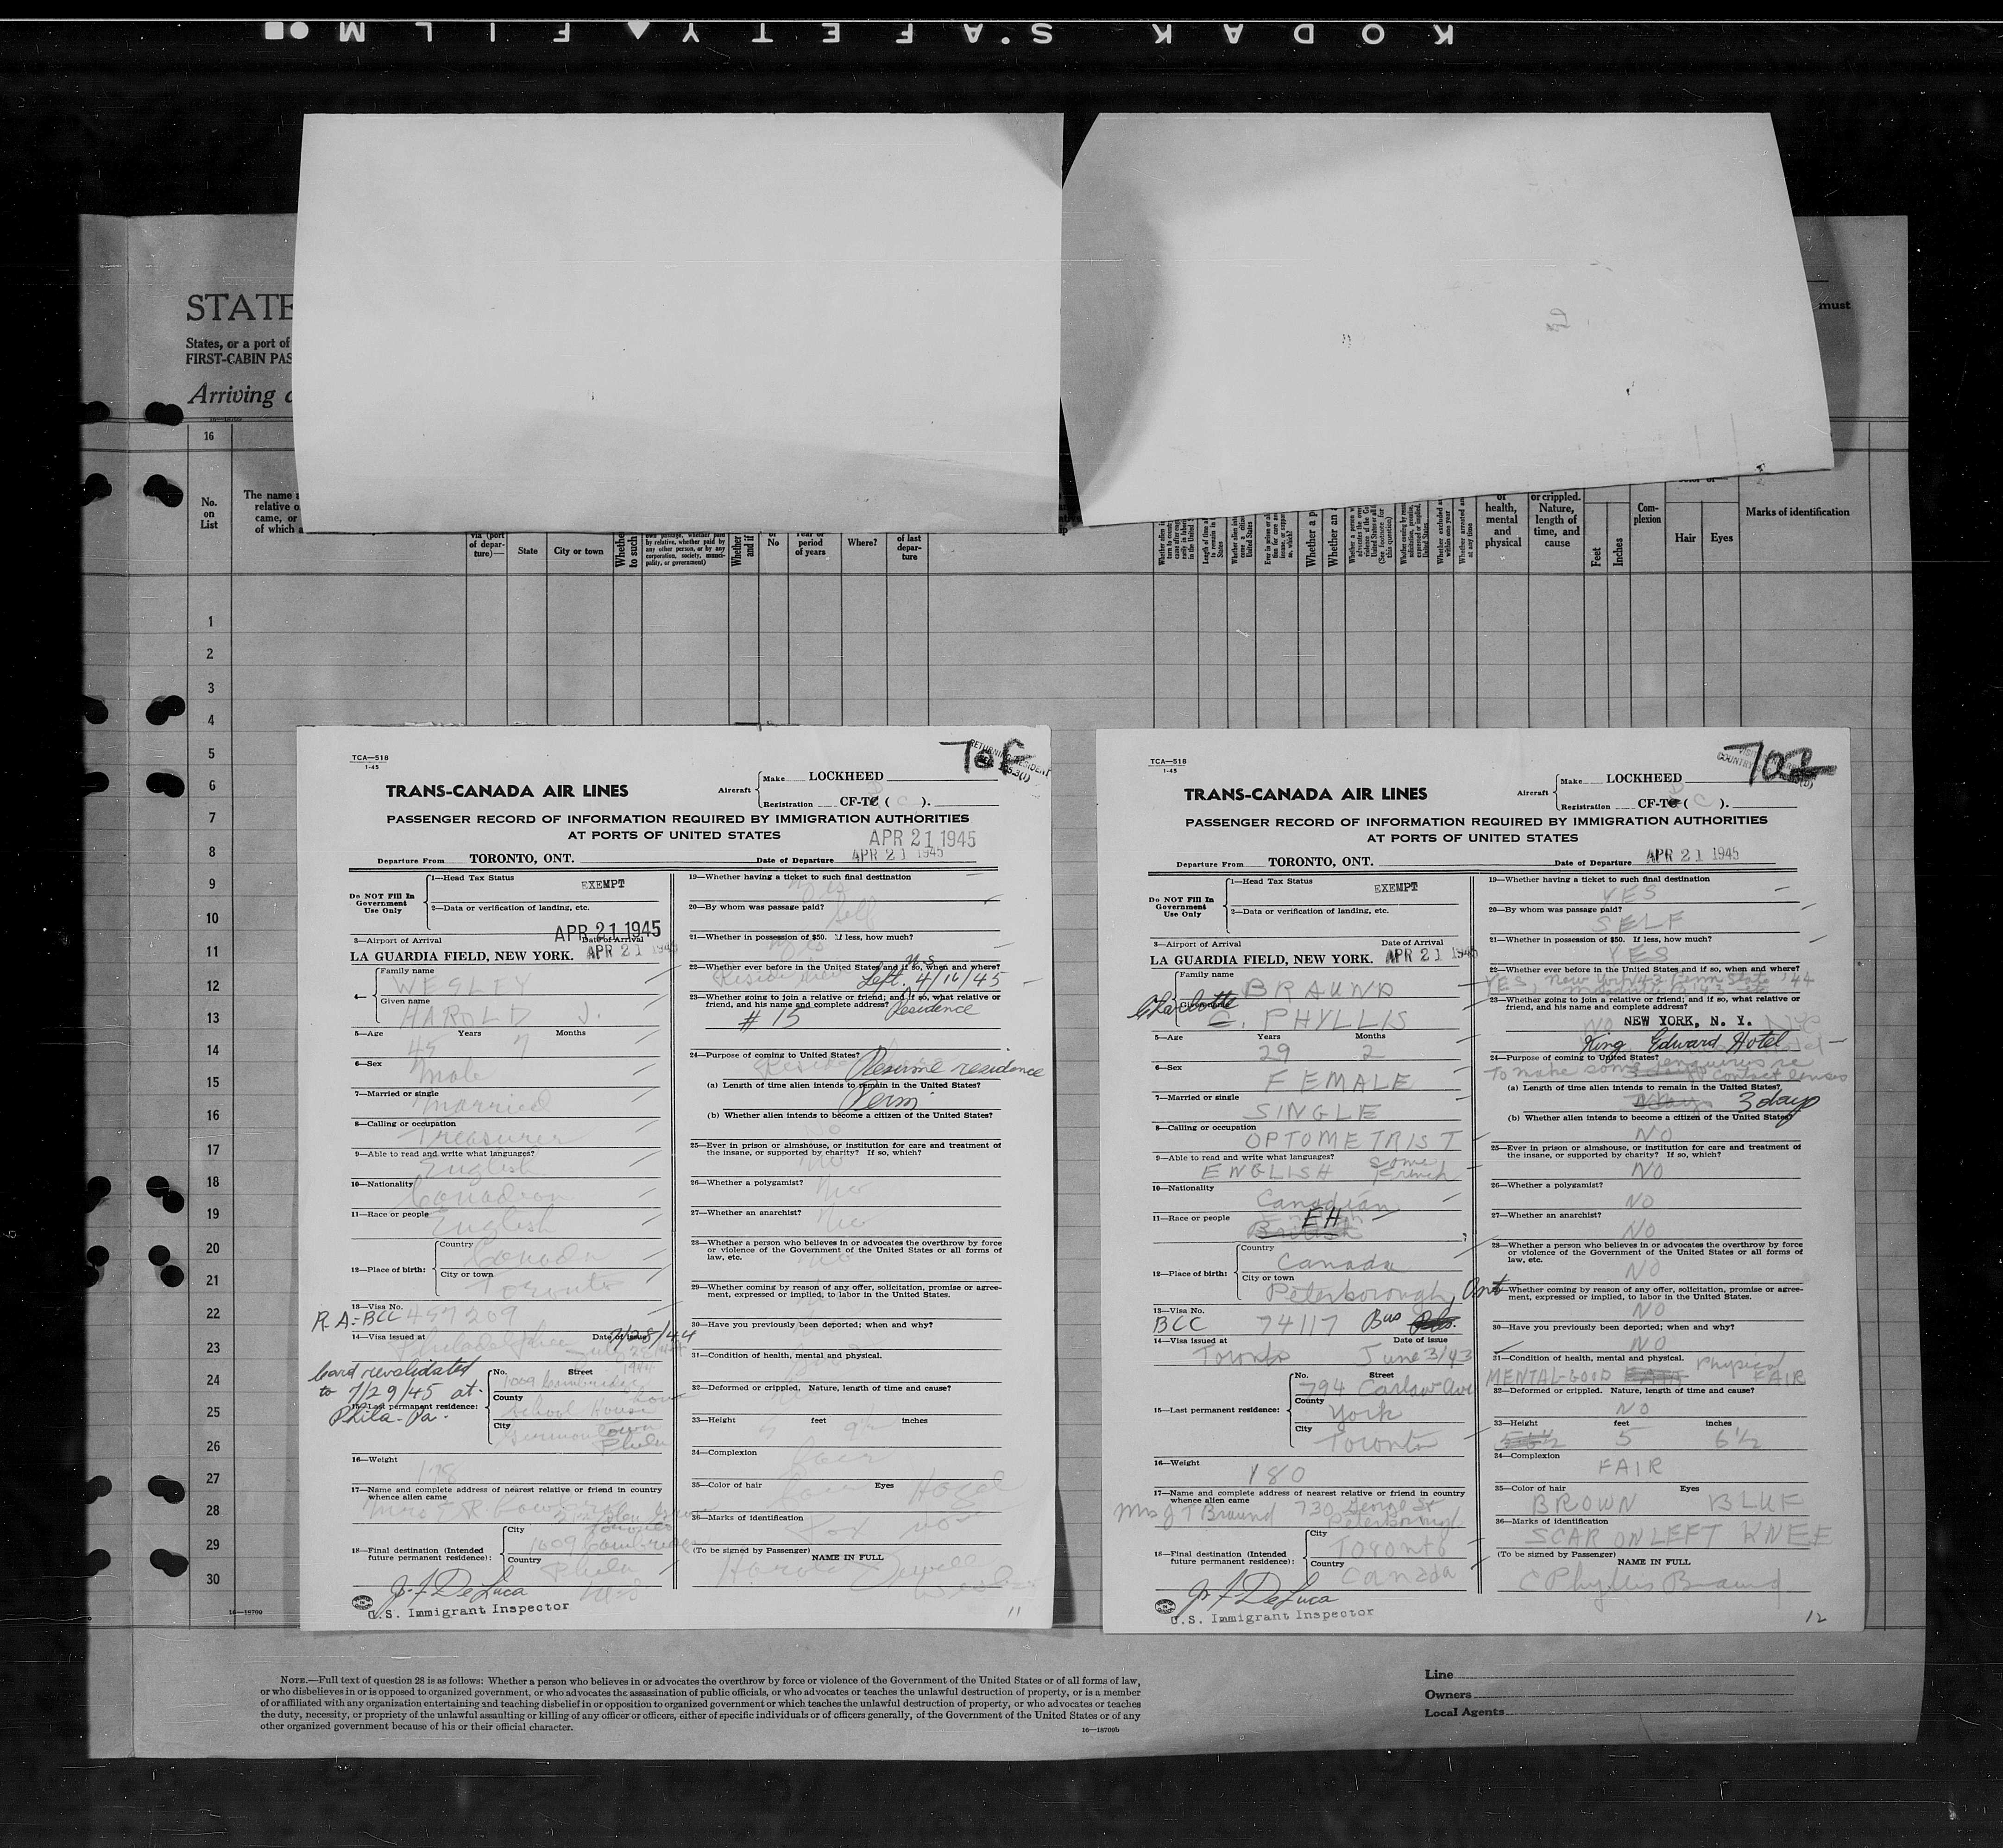 KODAK SAFETY FILM
STATE
States, or a port of
FIRST-CABIN PAS
Arriving
must
16
No.
on
List
The name
relative o
came, or
of which a
via (port
of depar-
ture)—
State
City or town
Whethe
to such
own passage, whether paid
by relative, whether paid by
any other person, or by any
corporation, society, munici-
pality, or government)
Whether
and if
or
No
Year or
period
of years
Where?
of last
depar-
ture
Whether a p
Whether an a
of
health,
mental
and
physical
or crippled.
Nature,
length of
time, and
cause
Feet
Inches
Com-
plexion
Hair
Eyes
Marks of identification
1
2
3
4
5
6
7
8
9
10
11
12
13
14
15
16
17
18
19
20
21
22
23
24
25
26
27
28
29
30
16—18709
TCA—518
1-45
RETURNING RESIDENT
TRANS-CANADA AIR LINES
Aircraft
Make LOCKHEED
Registration CF-T ( C ).
PASSENGER RECORD OF INFORMATION REQUIRED BY IMMIGRATION AUTHORITIES
AT PORTS OF UNITED STATES
APR 21 1945
Departure From TORONTO, ONT. Date of Departure APR 21 1945
Do NOT Fill In
Government
Use Only
1—Head Tax Status EXEMPT
2—Data or verification of landing, etc.
APR 21 1945
3—Airport of Arrival Date of Arrival
LA GUARDIA FIELD, NEW YORK. APR 21 1945
4—
Family name
WESLEY
Given name
HAROLD J.
5—Age Years Months
45 7
6—Sex
Male
7—Married or single
Married
8—Calling or occupation
Treasurer
9—Able to read and write what languages?
English
10—Nationality
Canadian
11—Race or people
English
12—Place of birth:
Country
Canada
City or town
Toronto
13—Visa No.
R.A.-BCC 457209
14—Visa issued at Date of issue
Philadelphia 7/28/44
Card revalidated
to 7/29/45 at
Phila-Pa.
15—Last permanent residence:
No. Street
1009
County
School House
City
Germantown
Phila
16—Weight
178
17—Name and complete address of nearest relative or friend in country
whence alien came
Mrs E R
18—Final destination (Intended
future permanent residence):
City
1009
Country
Phila
J. F. DeLuca
U.S. Immigrant Inspector
19—Whether having a ticket to such final destination
Yes
20—By whom was passage paid?
Self
21—Whether in possession of $50. If less, how much?
Yes
22—Whether ever before in the United States and if so, when and where?
Left U.S. 4/16/45
23—Whether going to join a relative or friend; and if so, what relative or
friend, and his name and complete address?
# 15 Residence
24—Purpose of coming to United States?
Resume residence
(a) Length of time alien intends to remain in the United States?
Perm
(b) Whether alien intends to become a citizen of the United States?
No
25—Ever in prison or almshouse, or institution for care and treatment of
the insane, or supported by charity? If so, which?
No
26—Whether a polygamist?
No
27—Whether an anarchist?
No
28—Whether a person who believes in or advocates the overthrow by force
or violence of the Government of the United States or all forms of
law, etc.
No
29—Whether coming by reason of any offer, solicitation, promise or agree-
ment, expressed or implied, to labor in the United States.
30—Have you previously been deported; when and why?
31—Condition of health, mental and physical.
32—Deformed or crippled. Nature, length of time and cause?
33—Height feet inches
5 9½
34—Complexion
Fair
35—Color of hair Eyes
Hazel
36—Marks of identification
(To be signed by Passenger) NAME IN FULL
Harold Jewell Wesley
11
TCA—518
1-45
TRANS-CANADA AIR LINES
Aircraft
Make LOCKHEED
Registration CF-T ( C ).
PASSENGER RECORD OF INFORMATION REQUIRED BY IMMIGRATION AUTHORITIES
AT PORTS OF UNITED STATES
Departure From TORONTO, ONT. Date of Departure APR 21 1945
Do NOT Fill In
Government
Use Only
1—Head Tax Status EXEMPT
2—Data or verification of landing, etc.
3—Airport of Arrival Date of Arrival
LA GUARDIA FIELD, NEW YORK. APR 21 1945
Family name
BRAUND
Given name
Charlotte C. PHYLLIS
5—Age Years Months
29 2
6—Sex
FEMALE
7—Married or single
SINGLE
8—Calling or occupation
OPTOMETRIST
9—Able to read and write what languages?
ENGLISH some French
10—Nationality
Canadian
11—Race or people EH
British
12—Place of birth:
Country
Canada
City or town
Peterborough, Ont
13—Visa No.
BCC 74117 Bus
14—Visa issued at Date of issue
Toronto June 3/43
15—Last permanent residence:
No. Street
794 Carlaw Ave
County
York
City
Toronto
16—Weight
180
17—Name and complete address of nearest relative or friend in country
whence alien came
Mrs J T Braund 730 George St
Peterborough
18—Final destination (Intended
future permanent residence):
City
Toronto
Country
Canada
J. F. DeLuca
U.S. Immigrant Inspector
19—Whether having a ticket to such final destination
YES
20—By whom was passage paid?
SELF
21—Whether in possession of $50. If less, how much?
YES
22—Whether ever before in the United States and if so, when and where?
YES, New York '43 Penn State '44
23—Whether going to join a relative or friend; and if so, what relative or
friend, and his name and complete address?
NO NEW YORK, N. Y.
King Edward Hotel
24—Purpose of coming to United States?
To make some enquiries re
contact lenses
(a) Length of time alien intends to remain in the United States?
3 days
(b) Whether alien intends to become a citizen of the United States?
NO
25—Ever in prison or almshouse, or institution for care and treatment of
the insane, or supported by charity? If so, which?
NO
26—Whether a polygamist?
NO
27—Whether an anarchist?
NO
28—Whether a person who believes in or advocates the overthrow by force
or violence of the Government of the United States or all forms of
law, etc.
NO
29—Whether coming by reason of any offer, solicitation, promise or agree-
ment, expressed or implied, to labor in the United States.
NO
30—Have you previously been deported; when and why?
NO
31—Condition of health, mental and physical.
MENTAL-GOOD Physical FAIR
32—Deformed or crippled. Nature, length of time and cause?
NO
33—Height feet inches
5 6½
34—Complexion
FAIR
35—Color of hair Eyes
BROWN BLUE
36—Marks of identification
SCAR ON LEFT KNEE
(To be signed by Passenger) NAME IN FULL
C Phyllis Braund
12
NOTE.—Full text of question 28 is as follows: Whether a person who believes in or advocates the overthrow by force or violence of the Government of the United States or of all forms of law,
or who disbelieves in or is opposed to organized government, or who advocates the assassination of public officials, or who advocates or teaches the unlawful destruction of property, or is a member
of or affiliated with any organization entertaining and teaching disbelief in or opposition to organized government or which teaches the unlawful destruction of property, or who advocates or teaches
the duty, necessity, or propriety of the unlawful assaulting or killing of any officer or officers, either of specific individuals or of officers generally, of the Government of the United States or of any
other organized government because of his or their official character.
16—18709b
Line
Owners
Local Agents